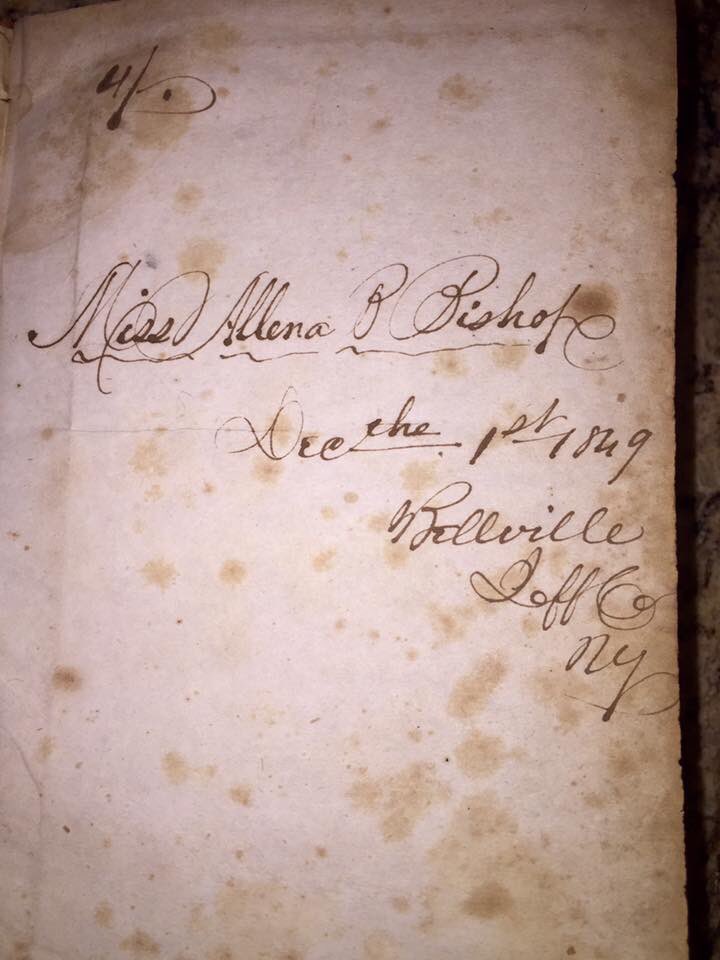 4/.
Miss Allena B Bishop
Dec the 1st 1849
Bellville
Jeff Co
NY